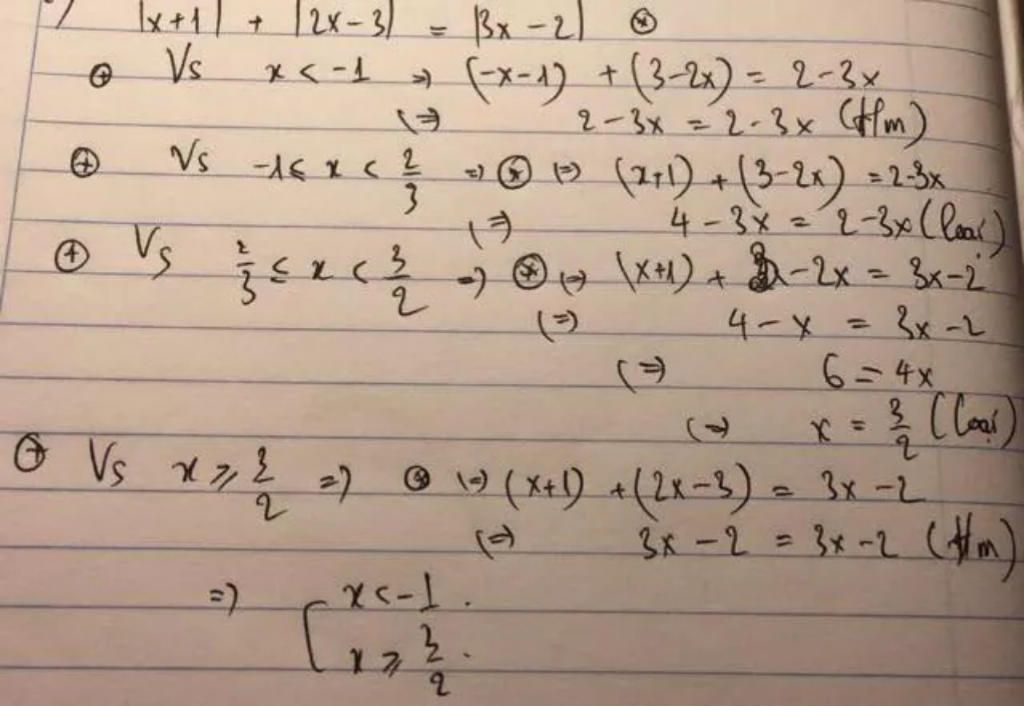 |x+1| + |2x-3| = |3x-2| ⊛
⊕ Vs x < -1 => (-x-1) + (3-2x) = 2-3x
(=> 2-3x = 2-3x (tlm)
⊕ Vs -1 ≤ x < 2/3 => ⊛ (=> (x+1) + (3-2x) = 2-3x
(=> 4-3x = 2-3x (loại)
⊕ Vs 2/3 ≤ x < 3/2 => ⊛ (=> (x+1) + 3-2x = 3x-2
(=> 4-x = 3x-2
(=> 6 = 4x
(=> x = 3/2 (loại)
⊕ Vs x ≥ 3/2 => ⊛ (=> (x+1) + (2x-3) = 3x-2
(=> 3x-2 = 3x-2 (tlm)
=> [ x < -1.
x ≥ 3/2.